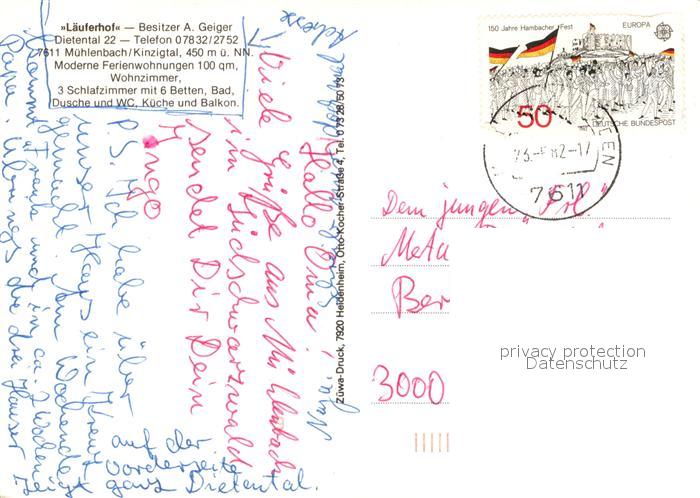 »Läuferhof« — Besitzer A. Geiger
Dietental 22 — Telefon 07832/2752
7611 Mühlenbach/Kinzigtal, 450 m ü. NN.
Moderne Ferienwohnungen 100 qm,
Wohnzimmer,
3 Schlafzimmer mit 6 Betten, Bad,
Dusche und WC, Küche und Balkon.
Adresse
Hallo Oma!
Viele Grüße aus Mühlenbach
im Südschwarzwald
sendet Dir Dein
Ingo
P.S. Ich habe über
unser Haus ein Kreuz
gemacht. Am Wochende
kommt und in ca. 2 Wochen
Papa. Übrigens die drei Häuser
auf der
Vorderseite
zeigt ganz Dietental.
Züwa-Druck, 7920 Heidenheim, Otto-Kocher-Straße 4, Tel. 07328/5073
150 Jahre Hambacher Fest
EUROPA
50
DEUTSCHE BUNDESPOST
7611
Dem jungen Frl.
Meta
Ber
3000
privacy protection
Datenschutz